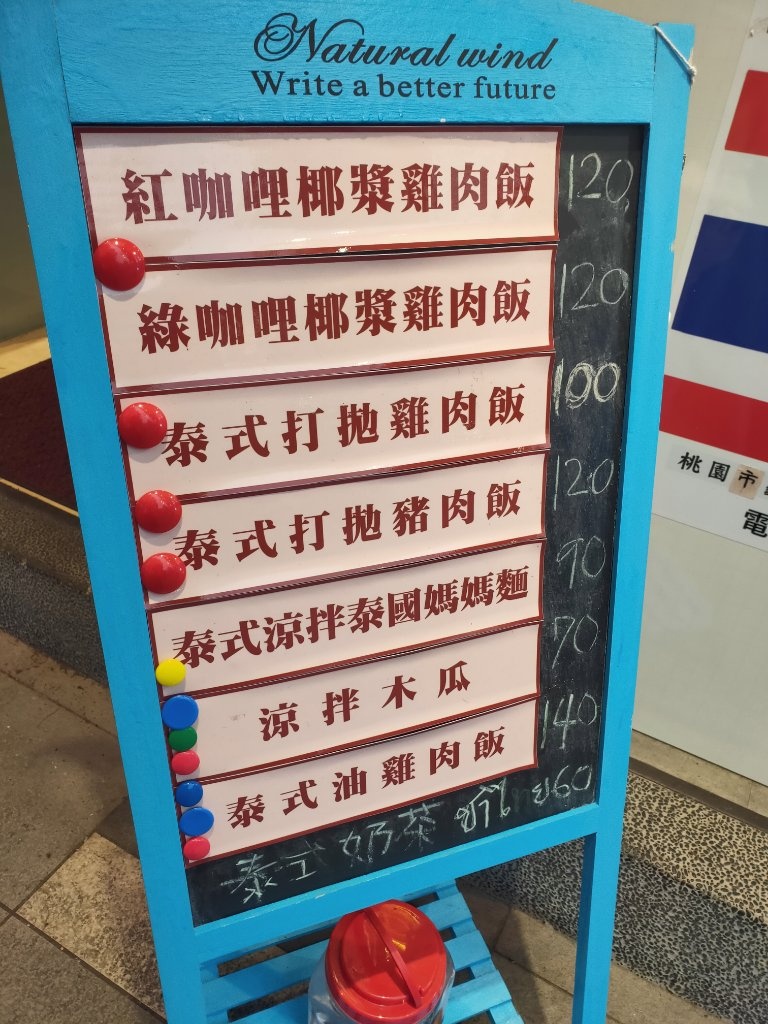 Natural wind
Write a better future
紅咖哩椰漿雞肉飯 120
綠咖哩椰漿雞肉飯 120
泰式打拋雞肉飯 100
泰式打拋豬肉飯 120
泰式涼拌泰國媽媽麵 90
涼拌木瓜 70
泰式油雞肉飯 140
泰式奶茶 60
桃園市
電